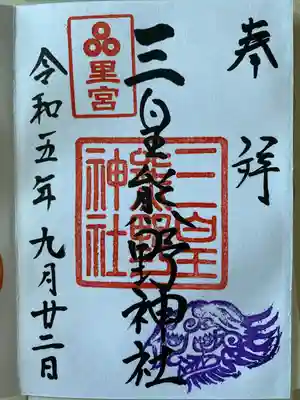 奉拝
三皇熊野神社
三皇
熊野
神社
里宮
令和五年九月廿二日